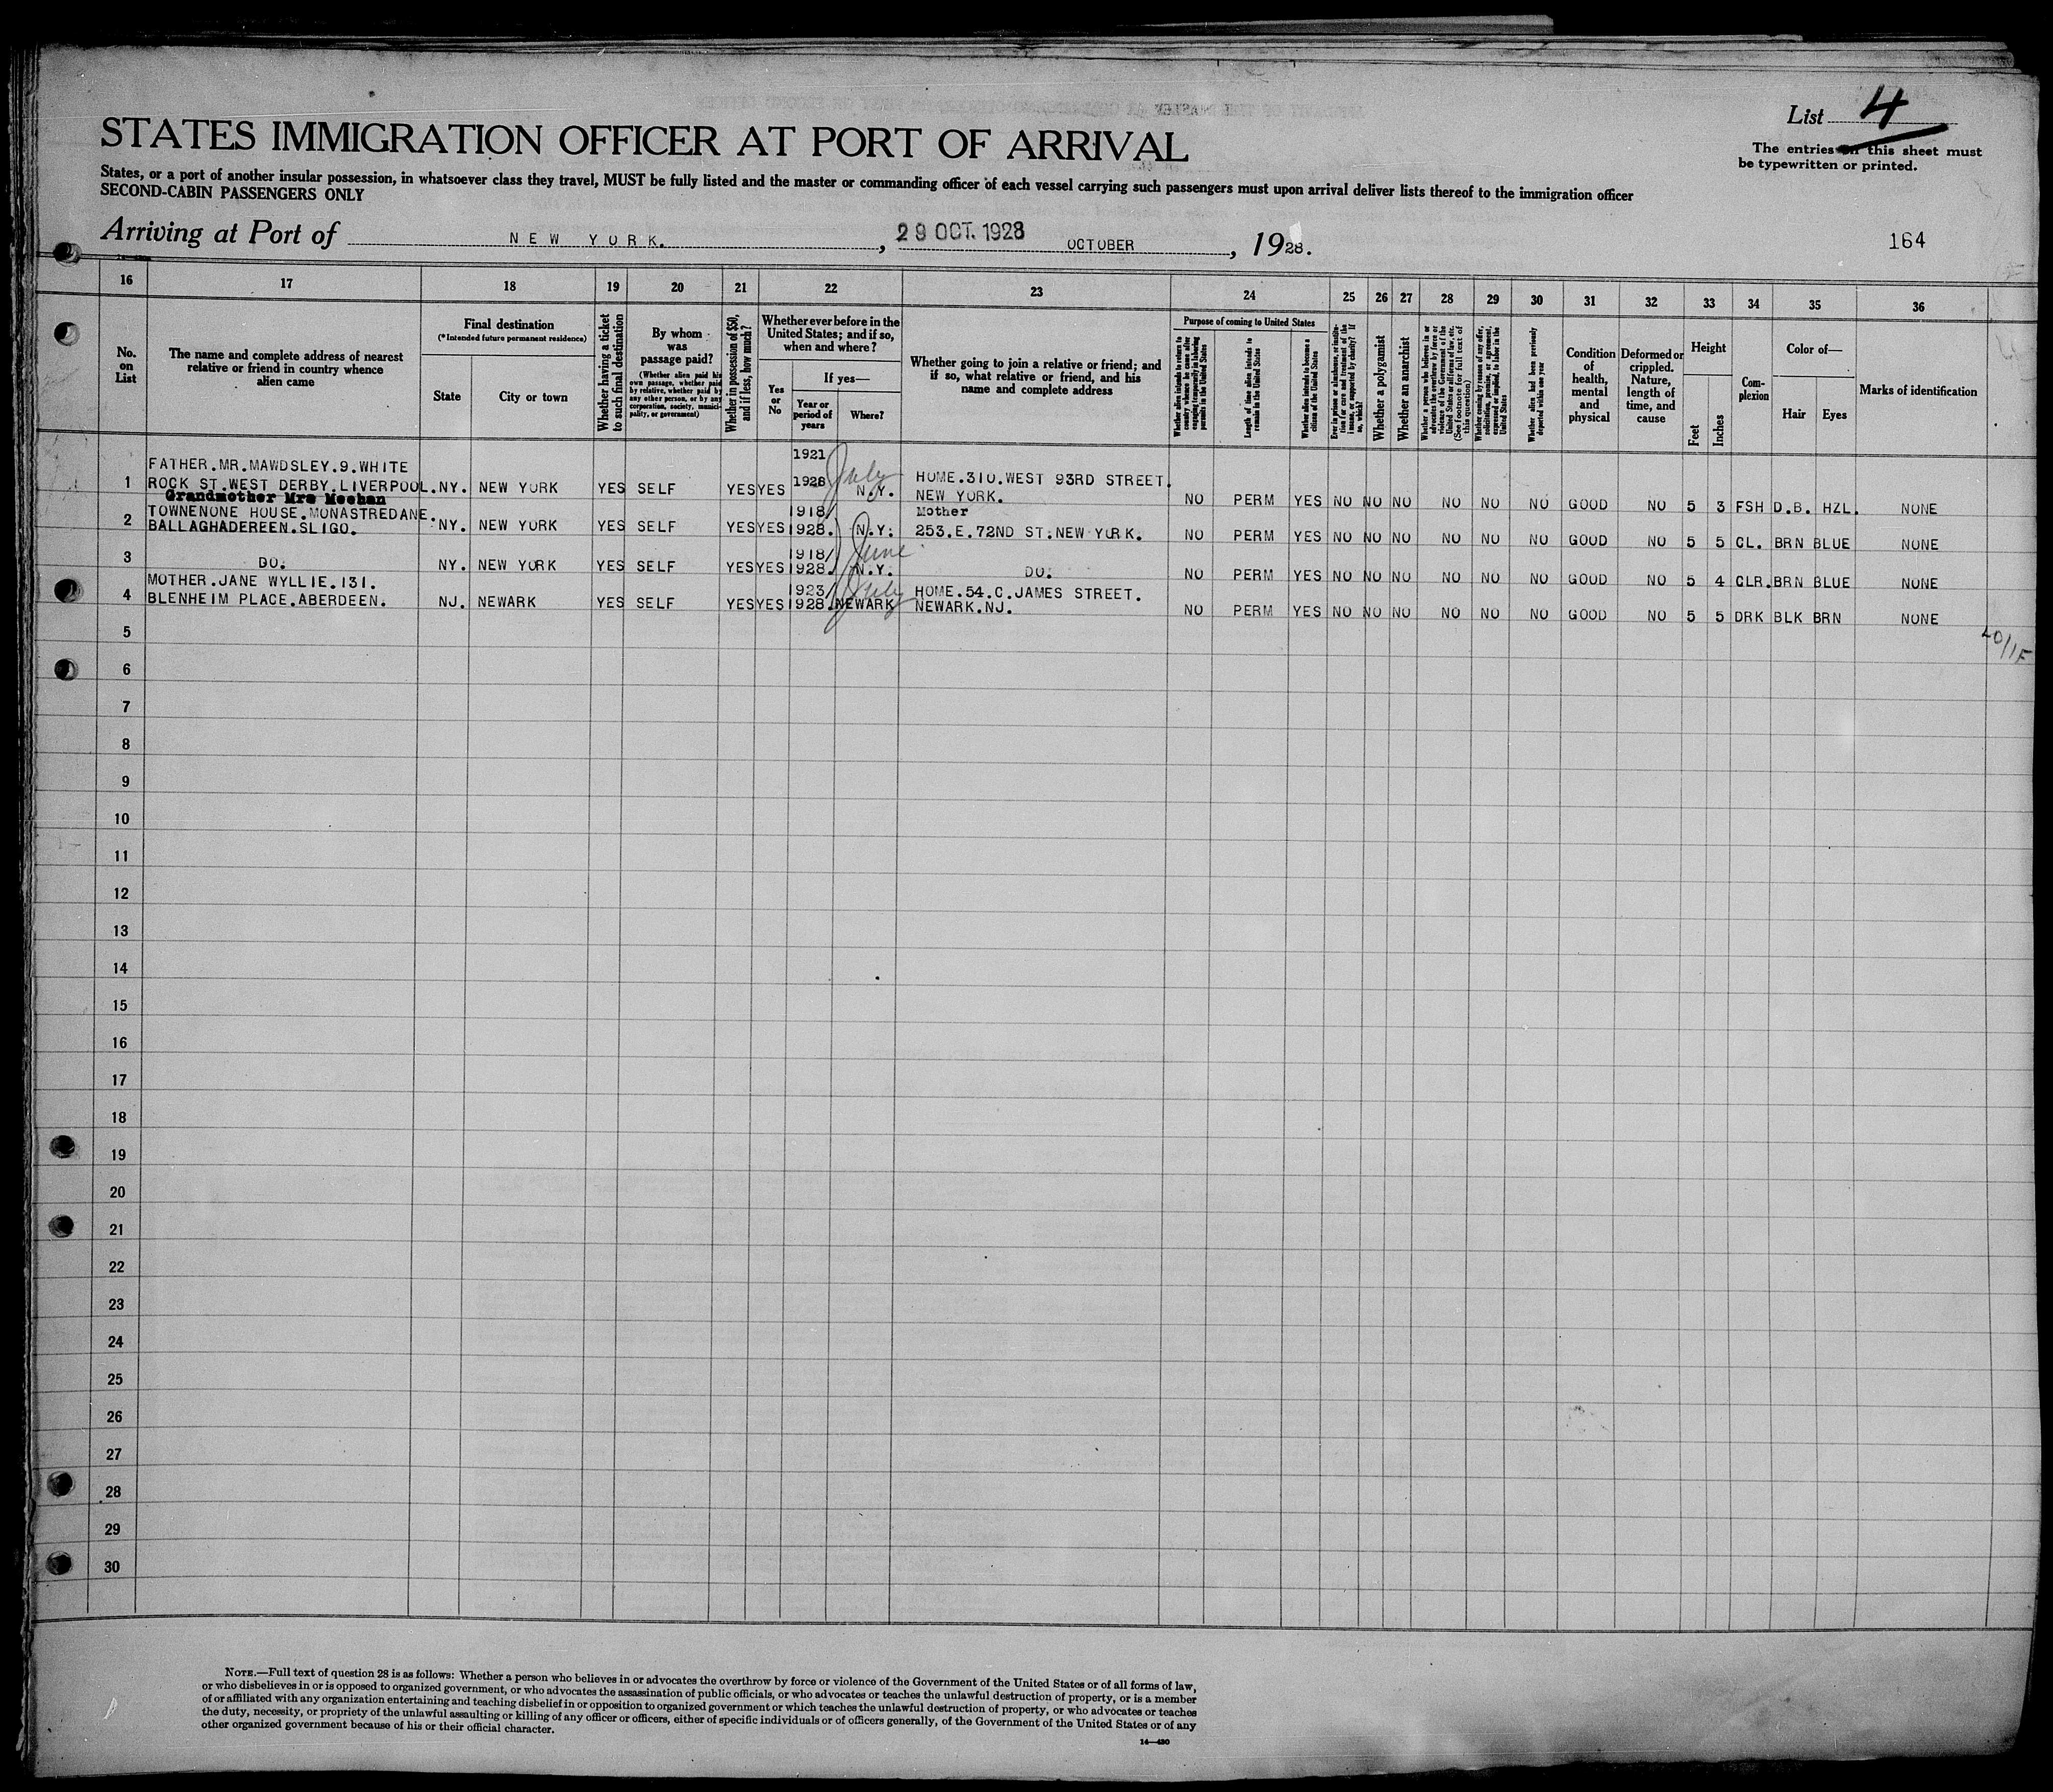 List 4
STATES IMMIGRATION OFFICER AT PORT OF ARRIVAL
The entries on this sheet must
be typewritten or printed.
States, or a port of another insular possession, in whatsoever class they travel, MUST be fully listed and the master or commanding officer of each vessel carrying such passengers must upon arrival deliver lists thereof to the immigration officer
SECOND-CABIN PASSENGERS ONLY
Arriving at Port of NEW YORK. , 29 OCT. 1928 OCTOBER , 1928.
164
16 17 18 19 20 21 22 23 24 25 26 27 28 29 30 31 32 33 34 35 36
No.
on
List
The name and complete address of nearest
relative or friend in country whence
alien came
Final destination
(*Intended future permanent residence)
State
City or town
Whether having a ticket
to such final destination
By whom
was
passage paid?
(Whether alien paid his
own passage, whether paid
by relative, whether paid by
any other person, or by any
corporation, society, munici-
pality, or government)
Whether in possession of $50,
and if less, how much?
Whether ever before in the
United States; and if so,
when and where?
Yes
or
No
If yes—
Year or
period of
years
Where?
Whether going to join a relative or friend; and
if so, what relative or friend, and his
name and complete address
Purpose of coming to United States
Whether alien intends to return to
country whence he came after
engaging temporarily in laboring
pursuits in the United States
Length of time alien intends to
remain in the United States
Whether alien intends to become a
citizen of the United States
Ever in prison or almshouse, or institu-
tion for care and treatment of the
insane, or supported by charity? If
so, which?
Whether a polygamist
Whether an anarchist
Whether a person who believes in or
advocates the overthrow by force or
violence of the Government of the
United States or all forms of law, etc.
(See footnote for full text of
this question)
Whether coming by reason of any offer,
solicitation, promise, or agreement,
expressed or implied, to labor in the
United States
Whether alien had been previously
deported within one year
Condition
of
health,
mental
and
physical
Deformed or
crippled.
Nature,
length of
time, and
cause
Height
Feet
Inches
Com-
plexion
Color of—
Hair
Eyes
Marks of identification
1921
FATHER.MR.MAWDSLEY.9.WHITE
1 ROCK ST.WEST DERBY.LIVERPOOL. NY. NEW YORK YES SELF YES YES 1928 July N.Y. HOME.310.WEST 93RD STREET.
NEW YORK. NO PERM YES NO NO NO NO NO NO GOOD NO 5 3 FSH D.B. HZL. NONE
Grandmother Mrs Meehan
TOWNENONE HOUSE.MONASTREDANE. 1918/ Mother
2 BALLAGHADEREEN.SLIGO. NY. NEW YORK YES SELF YES YES 1928. N.Y. 253.E.72ND ST.NEW YORK. NO PERM YES NO NO NO NO NO NO GOOD NO 5 5 CL. BRN BLUE NONE
1918/ June
3 DO. NY. NEW YORK YES SELF YES YES 1928. N.Y. DO. NO PERM YES NO NO NO NO NO NO GOOD NO 5 4 CLR. BRN BLUE NONE
MOTHER.JANE WYLLIE.131. 1923/ July HOME.54.C.JAMES STREET.
4 BLENHEIM PLACE.ABERDEEN. NJ. NEWARK YES SELF YES YES 1928. NEWARK NEWARK.NJ. NO PERM YES NO NO NO NO NO NO GOOD NO 5 5 DRK BLK BRN NONE
5
6
7
8
9
10
11
12
13
14
15
16
17
18
19
20
21
22
23
24
25
26
27
28
29
30
NOTE.—Full text of question 28 is as follows: Whether a person who believes in or advocates the overthrow by force or violence of the Government of the United States or of all forms of law,
or who disbelieves in or is opposed to organized government, or who advocates the assassination of public officials, or who advocates or teaches the unlawful destruction of property, or is a member
of or affiliated with any organization entertaining and teaching disbelief in or opposition to organized government or which teaches the unlawful destruction of property, or who advocates or teaches
the duty, necessity, or propriety of the unlawful assaulting or killing of any officer or officers, either of specific individuals or of officers generally, of the Government of the United States or of any
other organized government because of his or their official character.
14—430